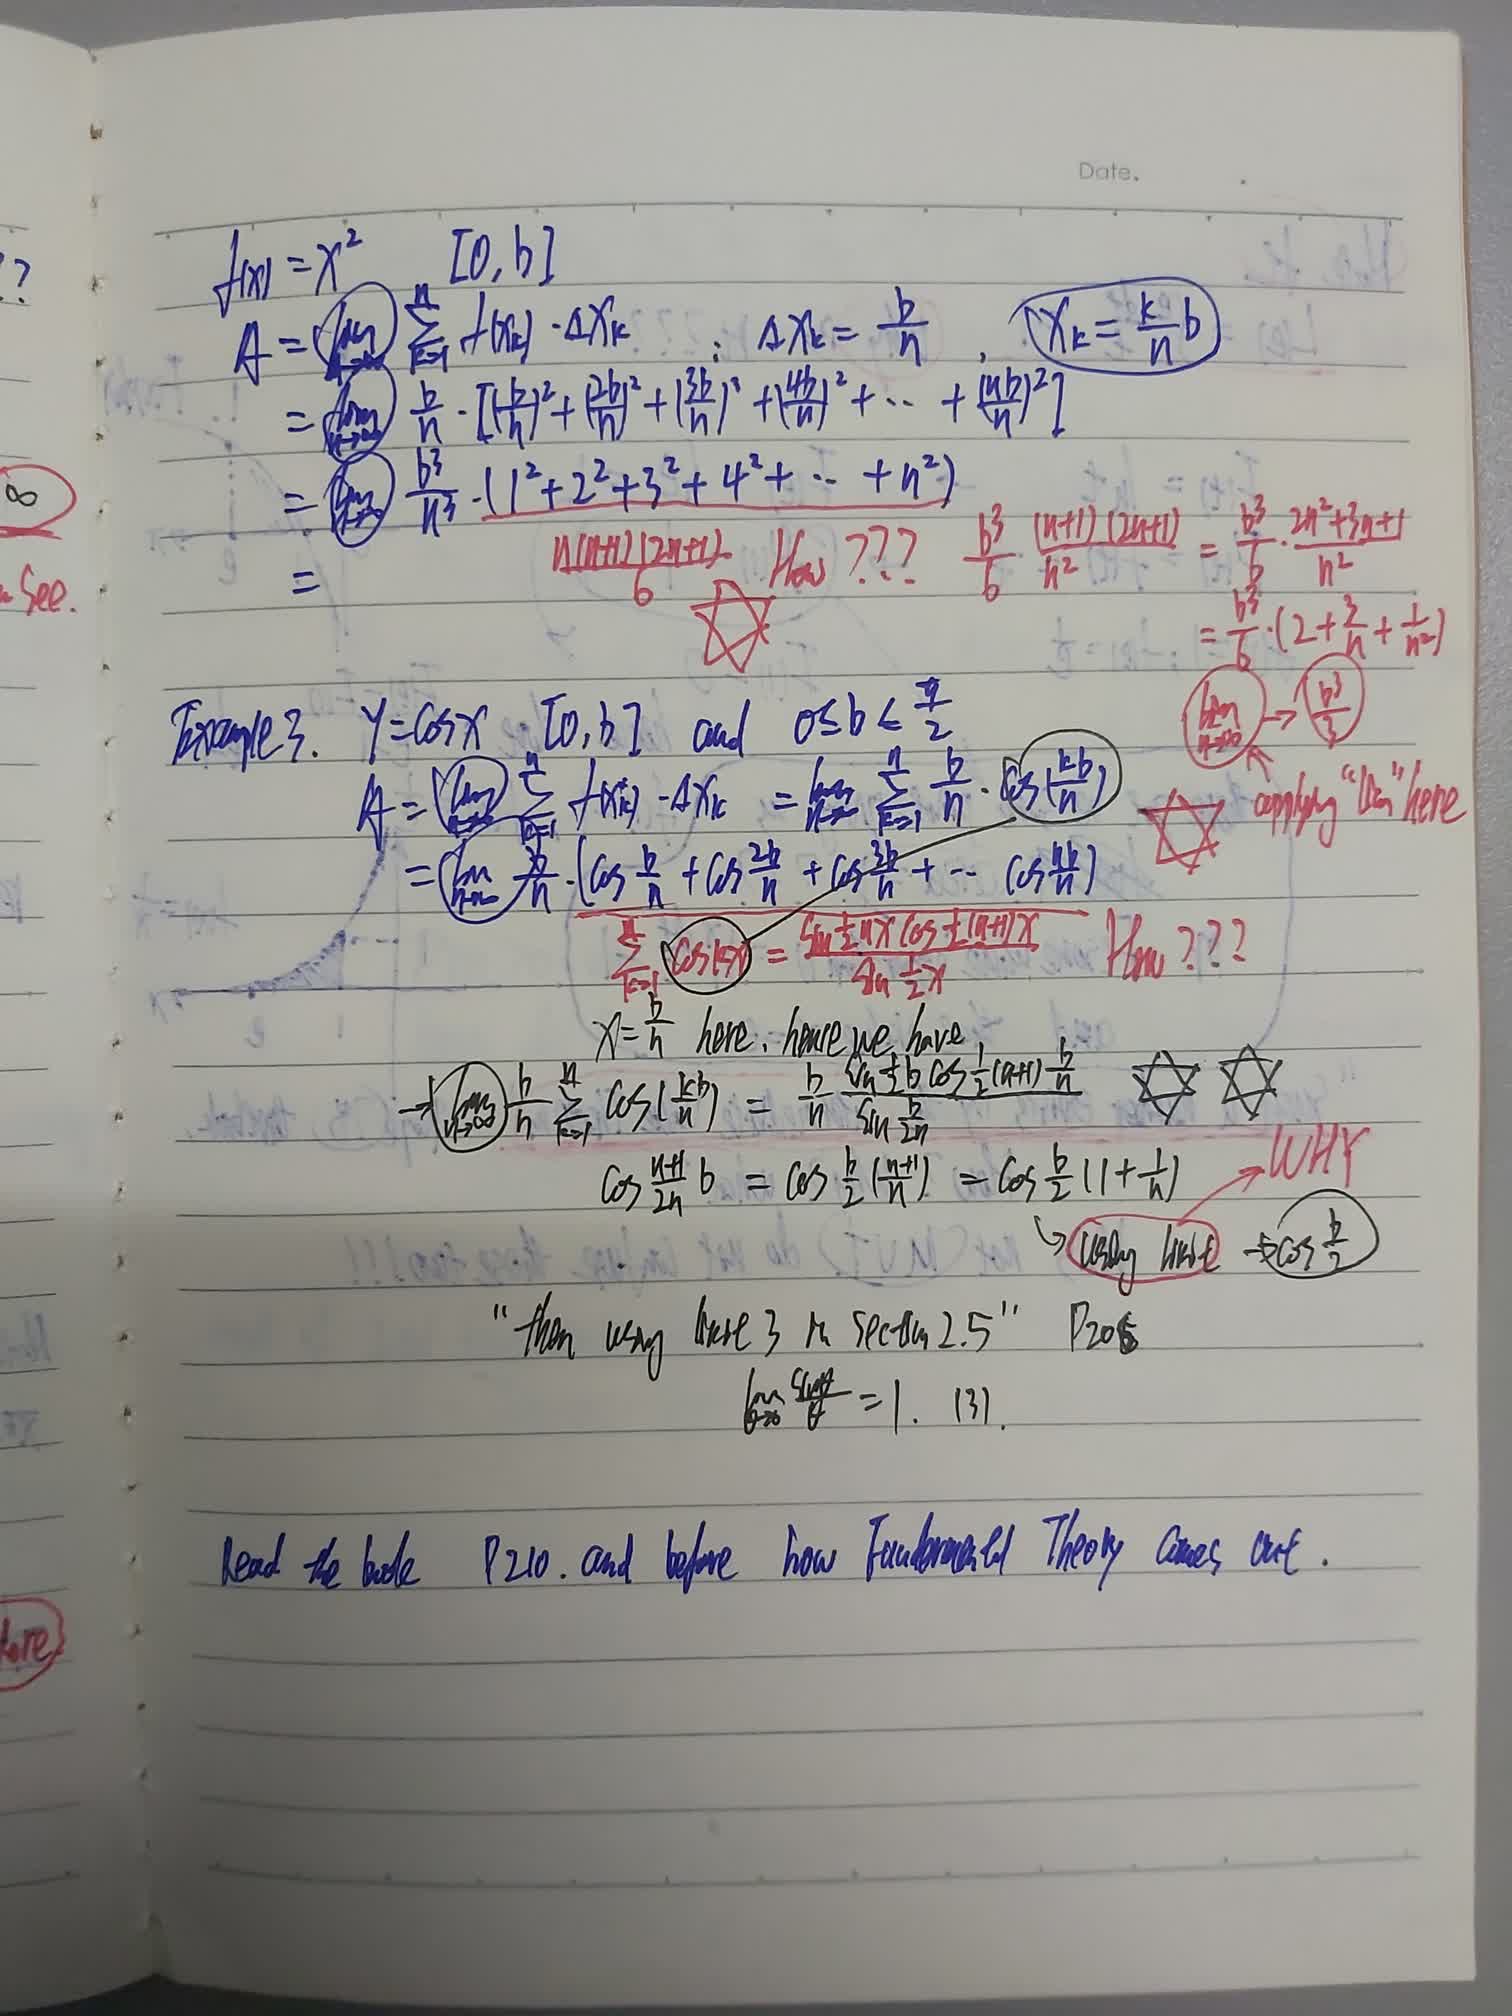 Date.
f(x) = x² [0, b]
A = lim n→∞ Σ k=1 n f(xk) · Δxk ; Δxk = b/n , xk = k/n b
= lim n→∞ b/n · [(b/n)² + (2b/n)² + (3b/n)² + (4b/n)² + ·· + (nb/n)²]
= lim n→∞ b³/n³ · (1² + 2² + 3² + 4² + ·· + n²)
= n(n+1)(2n+1)/6 How ??? b³/6 · (n+1)(2n+1)/n² = b³/6 · 2n²+3n+1/n²
= b³/6 · (2 + 3/n + 1/n²)
lim n→∞ → b³/3
applying "lim" here
Example 3. Y = cos x [0, b] and 0 ≤ b ≤ π/2
A = lim n→∞ Σ k=1 n f(xk) · Δxk = lim n→∞ Σ k=1 n b/n · cos(kb/n)
= lim n→∞ b/n · (cos b/n + cos 2b/n + cos 3b/n + ·· cos nb/n)
Σ k=1 n cos kx = sin ½nx cos ½(n+1)x / sin ½x How ???
x = b/n here, hence we have
→ lim n→∞ b/n Σ k=1 n cos(kb/n) = b/n sin ½b cos ½(n+1) b/n / sin b/2n
cos n+1/2n b = cos b/2 (n+1/n) = cos b/2 (1 + 1/n)
WHY
↳ using limit → cos b/2
"then using limit 3 in section 2.5" P206
lim θ→0 sinθ/θ = 1. (3).
Read the book P210. and before how Fundamental Theory comes out.
??
∞
See.